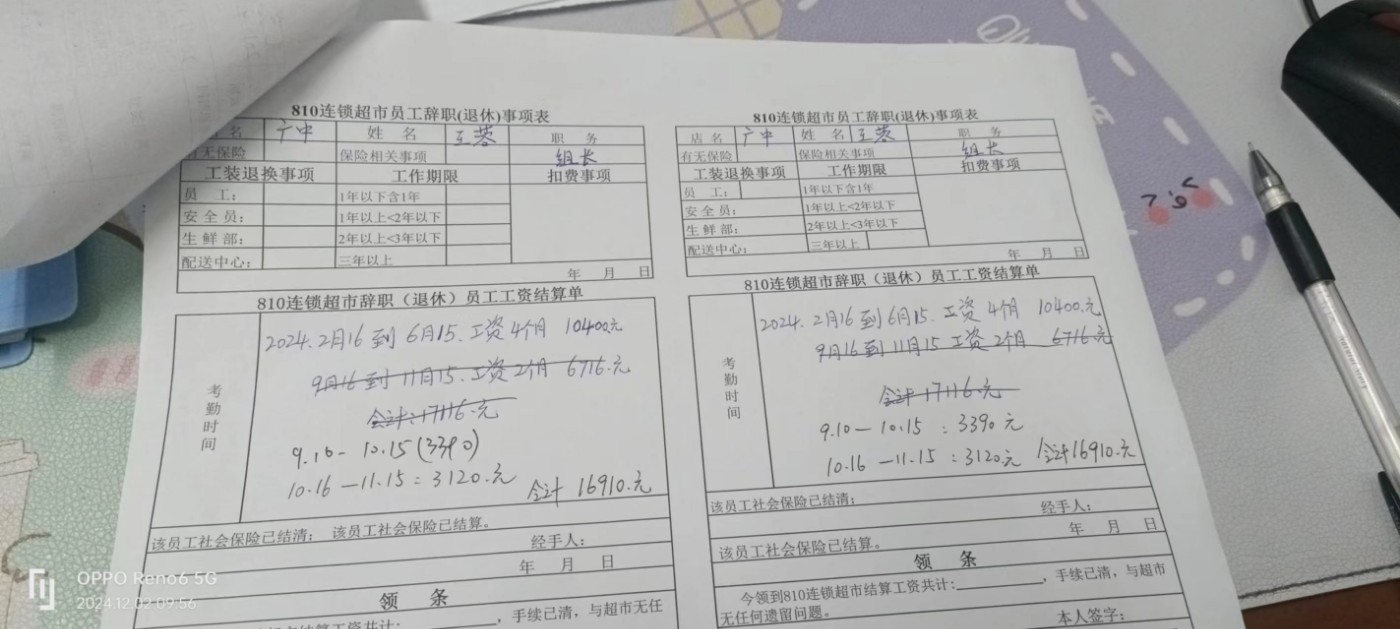 810连锁超市员工辞职(退休)事项表
名 广中 姓 名 王蓉 职 务
有无保险 保险相关事项 组长
工装退换事项 工作期限 扣费事项
员 工: 1年以下含1年
安全员: 1年以上<2年以下
生鲜部: 2年以上<3年以下
配送中心: 三年以上
年 月 日
810连锁超市辞职(退休)员工工资结算单
考勤时间
2024.2月16到6月15.工资4个月 10400元
9月16到11月15.工资2个月 6716.元
合计:17116.元
9.16- 10.15(3390)
10.16-11.15:3120.元 合计 16910.元
该员工社会保险已结清; 该员工社会保险已结算。
经手人:
年 月 日
领 条
结算工资共计: ,手续已清,与超市无任
810连锁超市员工辞职(退休)事项表
店 名 广中 姓 名 王蓉 职 务
有无保险 保险相关事项 组长
工装退换事项 工作期限 扣费事项
员 工: 1年以下含1年
安全员: 1年以上<2年以下
生鲜部: 2年以上<3年以下
配送中心: 三年以上
年 月 日
810连锁超市辞职(退休)员工工资结算单
考勤时间
2024.2月16到6月15.工资4个月 10400.元
9月16到11月15工资2个月 6716.元
合计17116.元
9.10-10.15:3390元
10.16-11.15:3120元 合计16910元
该员工社会保险已结清;
经手人:
年 月 日
该员工社会保险已结算。
领 条
今领到810连锁超市结算工资共计: ,手续已清,与超市
无任何遗留问题。
本人签字:
OPPO Reno6 5G
2024.12.02 09:56